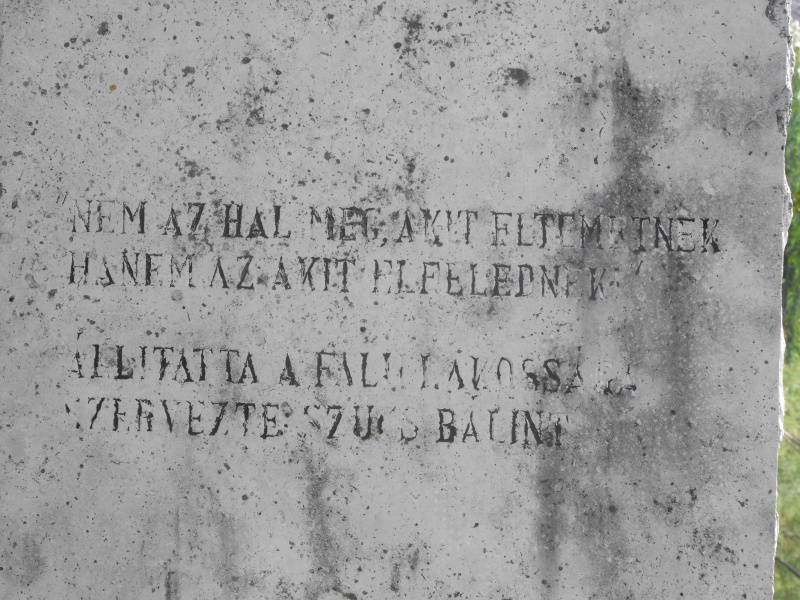 "NEM AZ HAL MEG, AKIT ELTEMETNEK
HANEM AZ AKIT ELFELEDNEK"
ÁLLITATTA A FALU LAKOSSÁGA
SZERVEZTE: SZUCS BÁLINT